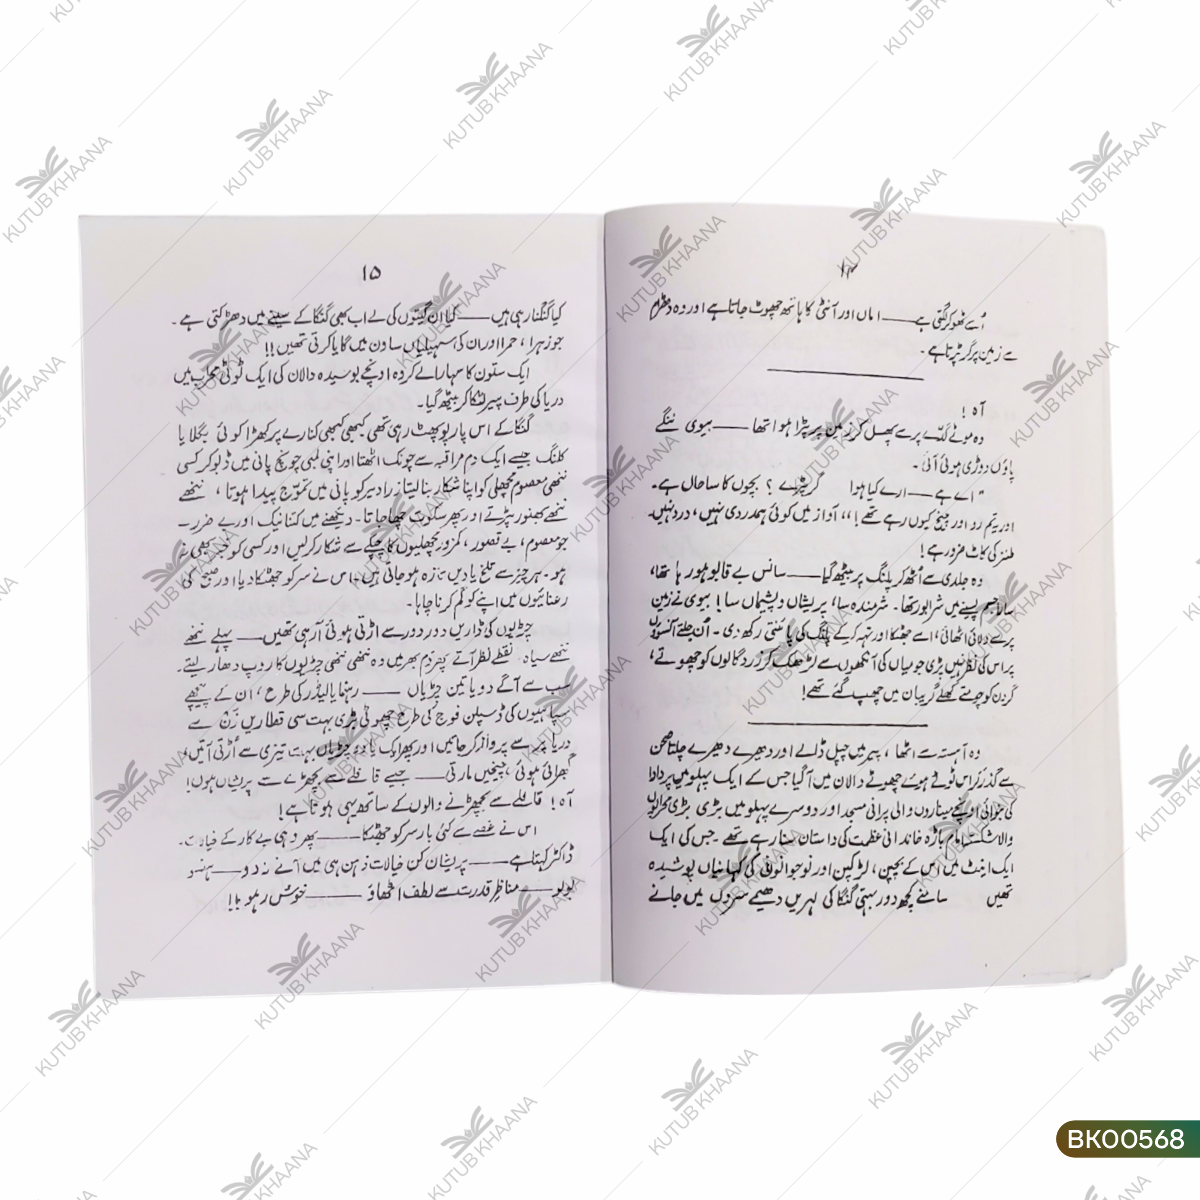 ۱۴
اُسے ٹھوکر لگتی ہے——اماں اور آنٹی کا ہاتھ چھوٹ جاتا ہے اور وہ دھڑام
سے زمین پر گر پڑتا ہے۔
آہ!
وہ موٹے گدّے پر سے پھسل کر زمین پر پڑا ہوا تھا——بیوی ننگے
پاؤں دوڑی ہوئی آئی۔
"اے ہے——ارے کیا ہوا گر پڑے؟ بچوں کا سا حال ہے۔
اور یتم رو اور چیخ کیوں رہے تھے!،، آواز میں کوئی ہمدردی نہیں، درد نہیں،
طنز کی کاٹ ضرور ہے!
وہ جلدی سے اُٹھ کر پلنگ پر بیٹھ گیا——سانس بے قابو ہو رہا تھا،
سارا جسم پسینے میں شرابور تھا۔ شرمندہ سا، پریشاں و پشیماں سا! بیوی نے زمین
پر سے دلائی اٹھائی، اسے جھٹکا اور تہہ کر کے پلنگ کی پائنتی رکھ دی۔ اُن جلتے آنسوؤں
پر اس کی نظر نہیں پڑی جو میاں کی آنکھوں سے لڑھک کر زرد گالوں کو چھوتے،
گردن کو چومتے کھلے گریبان میں چھپ گئے تھے!
وہ آہستہ سے اٹھا، پیر میں چپل ڈالے اور دھیرے دھیرے چلتا صحن
سے گذر کر اس ٹوٹے ہوئے چھوٹے دالان میں آ گیا جس کے ایک پہلو میں پر دادا
کی بنوائی اونچے میناروں والی پرانی مسجد اور دوسرے پہلو میں بڑی بڑی محرابوں
والا شکستہ امام باڑہ خاندانی عظمت کی داستان سنا رہے تھے۔ جس کی ایک
ایک اینٹ میں اس کے بچپن، لڑکپن اور نوجوانی کی کہانیاں پوشیدہ
تھیں سامنے کچھ دور بہتی گنگا کی لہریں دھیمے سروں میں جانے
۱۵
کیا گنگنا رہی ہیں——کیا ان گیتوں کی لے اب بھی گنگا کے سینے میں دھڑکتی ہے۔
جو زہرا، حمرا اور ان کی سہیلیاں ساون میں گایا کرتی تھیں!!
ایک ستون کا سہارا لے کر وہ اونچے بوسیدہ دالان کی ایک ٹوٹی محراب میں
دریا کی طرف پیر لٹکا کر بیٹھ گیا۔
گنگا کے اس پار پو پھٹ رہی تھی کبھی کبھی کنارے پر کھڑا کوئی بگلا یا
کلنگ جیسے ایک دم مراقبہ سے چونک اٹھتا اور اپنی لمبی چونچ پانی میں ڈبو کر کسی
ننھی معصوم مچھلی کو اپنا شکار بنا لیتا ذرا دیر کو پانی میں تموّج پیدا ہوتا، ننھے
ننھے بھنور پڑتے اور پھر سکوت چھا جاتا۔ دیکھنے میں کتنا نیک اور بے ضرر۔
جو معصوم، بے قصور، کمزور مچھلیوں کا چپکے سے شکار کر لیں اور کسی کو خبر بھی نہ
ہو۔ ہر چیز سے تلخ یادیں تازہ ہو جاتی ہیں۔ اس نے سر کو جھٹکا دیا اور صبح کی
رعنائیوں میں اپنے کو گم کرنا چاہا۔
چڑیوں کی ڈاریں دور دور سے اڑتی ہوئی آ رہی تھیں——پہلے ننھے
ننھے سیاہ نقطے نظر آتے پھر دم بھر میں وہ ننھی ننھی چڑیوں کا روپ دھار لیتے۔
سب سے آگے دو یا تین چڑیاں——رہنما یا لیڈر کی طرح، ان کے پیچھے
سپاہیوں کی ڈسپلن فوج کی طرح چھوٹی بڑی بہت سی قطاریں زن سے
دریا پر سے پرواز کر جاتیں اور پھر ایک یا دو چڑیاں بہت تیزی سے اُڑتی آتیں،
گھبرائی ہوئی، چیخیں مارتی——جیسے قافلے سے بچھڑے پریشاں ہوں!
آہ! قافلے سے بچھڑنے والوں کے ساتھ یہی ہوتا ہے!
اس نے غصے سے کئی بار سر کو جھٹکا——پھر وہی بے کار کے خیالات۔
ڈاکٹر کہتا ہے——پریشان کن خیالات ذہن ہی میں آنے نہ دو——ہنسو
بولو——مناظرِ قدرت سے لطف اٹھاؤ——خوش رہو بابا!
KUTUB KHAANA
BK00568